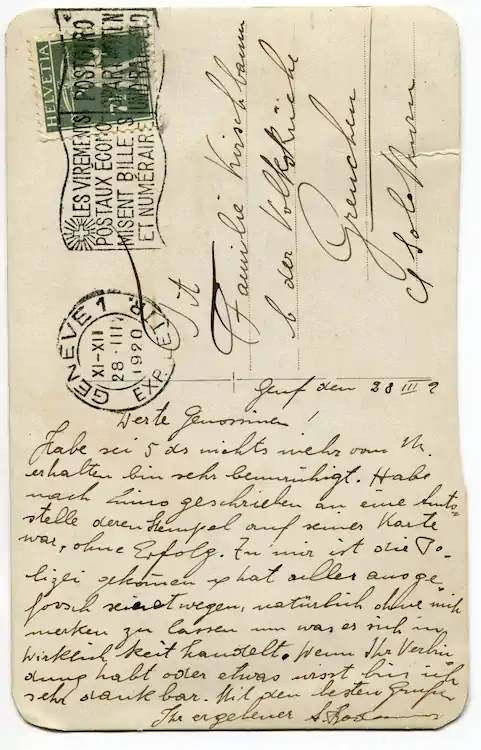 HELVETIA
LES VIREMENTS
POSTAUX ÉCONO
MISENT BILLETS
ET NUMÉRAIRE
GENÈVE 1
EXP. LETTR.
XI-XII
28·III
1920
Tit
Familie Kirschbaum
b der Volksküche
Grenchen
Solothurn
Genf den 28 III
Werte Genossinen!
Habe sei 5 ds nichts mehr vom M.
erhalten bin sehr beunrühigt. Habe
nach geschrieben an eine Amts=
stelle deren Stempel auf seiner Karte
war, ohne Erfolg. Zu mir ist die Po-
lizei gekomen & hat alles ausge
forsch wegen, natürlich ohne mich
merken zu lassen um was es sich in
Wirklich keit handelt. Wenn Ihr Verbin
dung habt oder etwas wisst bin ich
sehr dankbar. Mit den besten Grüßen
Ihr ergebener